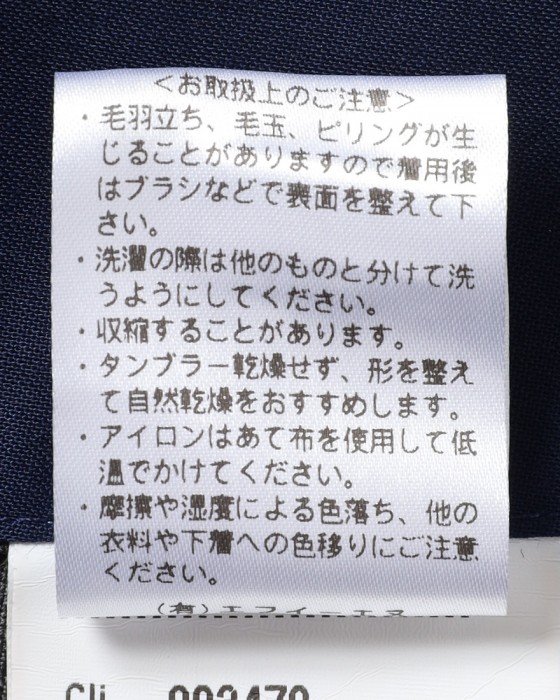 <お取扱上のご注意>
・毛羽立ち、毛玉、ピリングが生
じることがありますので着用後
はブラシなどで表面を整えて下
さい。
・洗濯の際は他のものと分けて洗
うようにしてください。
・収縮することがあります。
・タンブラー乾燥せず、形を整え
て自然乾燥をおすすめします。
・アイロンはあて布を使用して低
温でかけてください。
・摩擦や湿度による色落ち、他の
衣料や下着への色移りにご注意
ください。
(有)エフイーエヌ